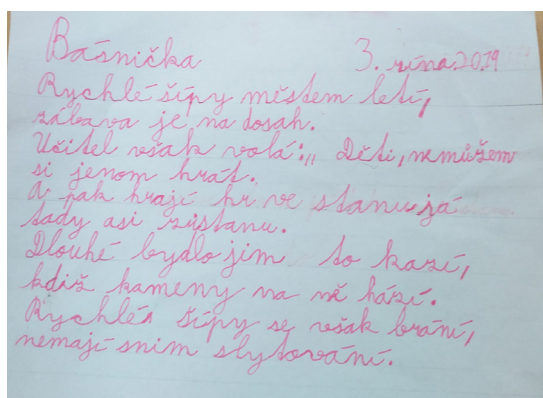 Básnička 3. října 2019
Rychlé šípy městem letí,
zábava je na dosah.
Učitel však volá:,, Děti, nemůžem
si jenom hrát.
A pak hrají hr ve stanu.já
tady asi zůstanu.
Dlouhé bydlo jim to kazí,
kdiž kameny na ně hází.
Rychlé šípy se však brání,
nemají sním slytování.